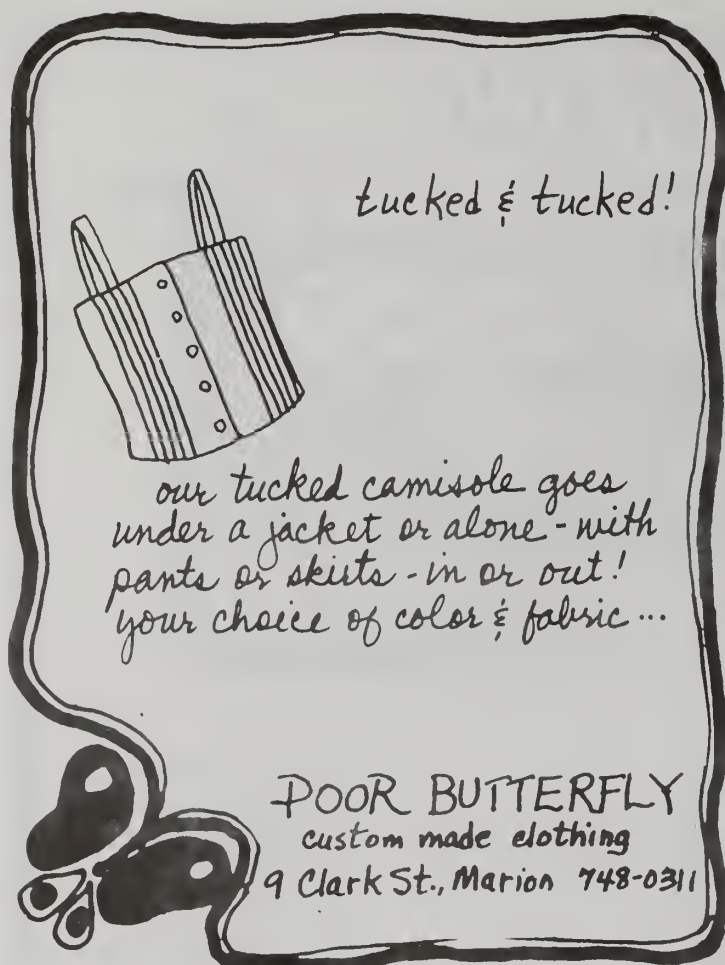 tucked & tucked!
our tucked camisole goes
under a jacket or alone - with
pants or skirts - in or out!
your choice of color & fabric ...
POOR BUTTERFLY
custom made clothing
9 Clark St., Marion 748-0311